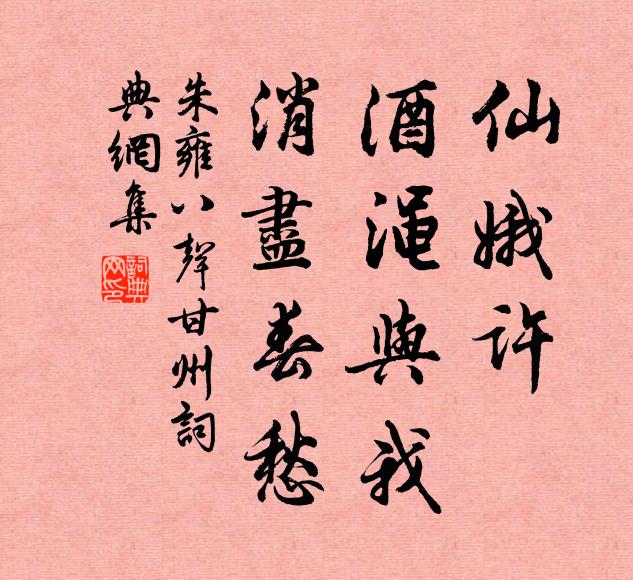 仙娥许
酒渑与我
消尽春愁
朱雍八声甘州词
典网集
词典网印